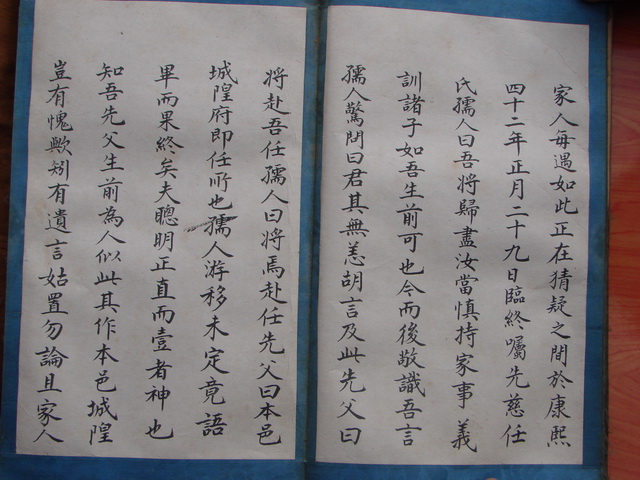 家人每遇如此正在猜疑之間於康熙
四十二年正月二十九日臨終囑先慈任
氏孺人曰吾將歸盡汝當慎持家事義
訓諸子如吾生前可也今而後敬識吾言
孺人驚問曰君其無恙胡言及此先父曰
將赴吾任孺人曰將焉赴任先父曰本邑
城隍府即任所也孺人游移未定竟語
畢而果終矣夫聰明正直而壹者神也
知吾先父生前為人似此其作本邑城隍
豈有愧歟矧有遺言姑置勿論且家人